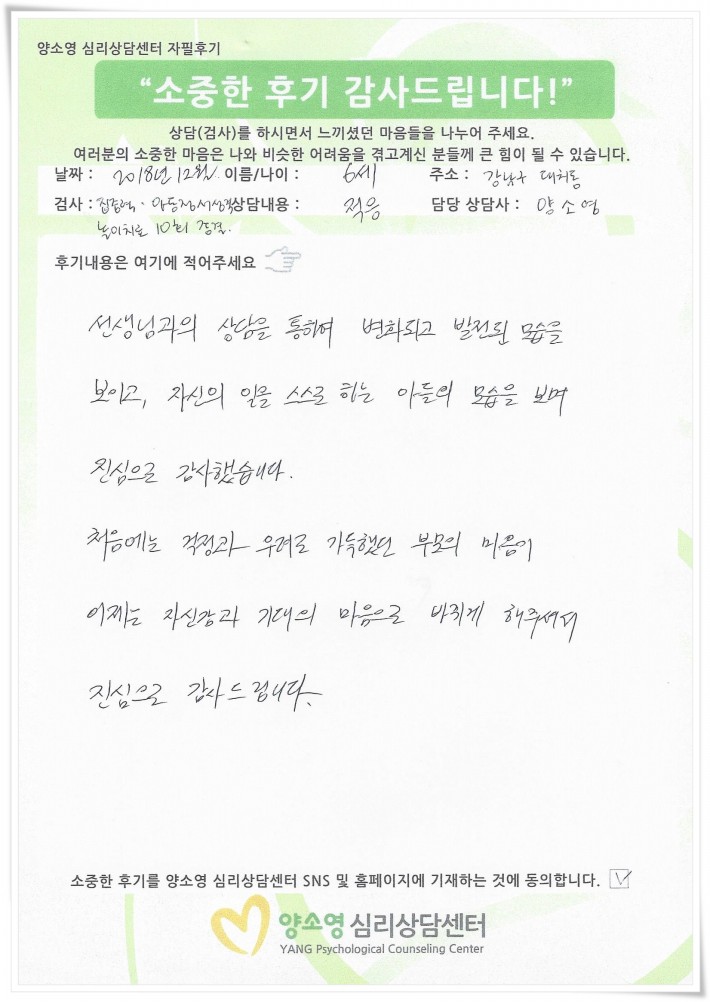 양소영 심리상담센터 자필후기
“소중한 후기 감사드립니다!”
상담(검사)를 하시면서 느끼셨던 마음들을 나누어 주세요.
여러분의 소중한 마음은 나와 비슷한 어려움을 겪고계신 분들께 큰 힘이 될 수 있습니다.
날짜 : 2018년 12월. 이름/나이 : 6세 주소 : 강남구 대치동
검사 : 집중력 · 아동정서성격 상담내용 : 적응 담당 상담사 : 양소영
놀이치료 10회 종결.
후기내용은 여기에 적어주세요
선생님과의 상담을 통하여 변화되고 발전된 모습을
보이고, 자신의 일을 스스로 하는 아들의 모습을 보며
진심으로 감사했습니다.
처음에는 걱정과 우려로 가득했던 부모의 마음이
이제는 자신감과 기대의 마음으로 바뀌게 해주셔서
진심으로 감사드립니다.
소중한 후기를 양소영 심리상담센터 SNS 및 홈페이지에 기재하는 것에 동의합니다.
양소영 심리상담센터
YANG Psychological Counseling Center